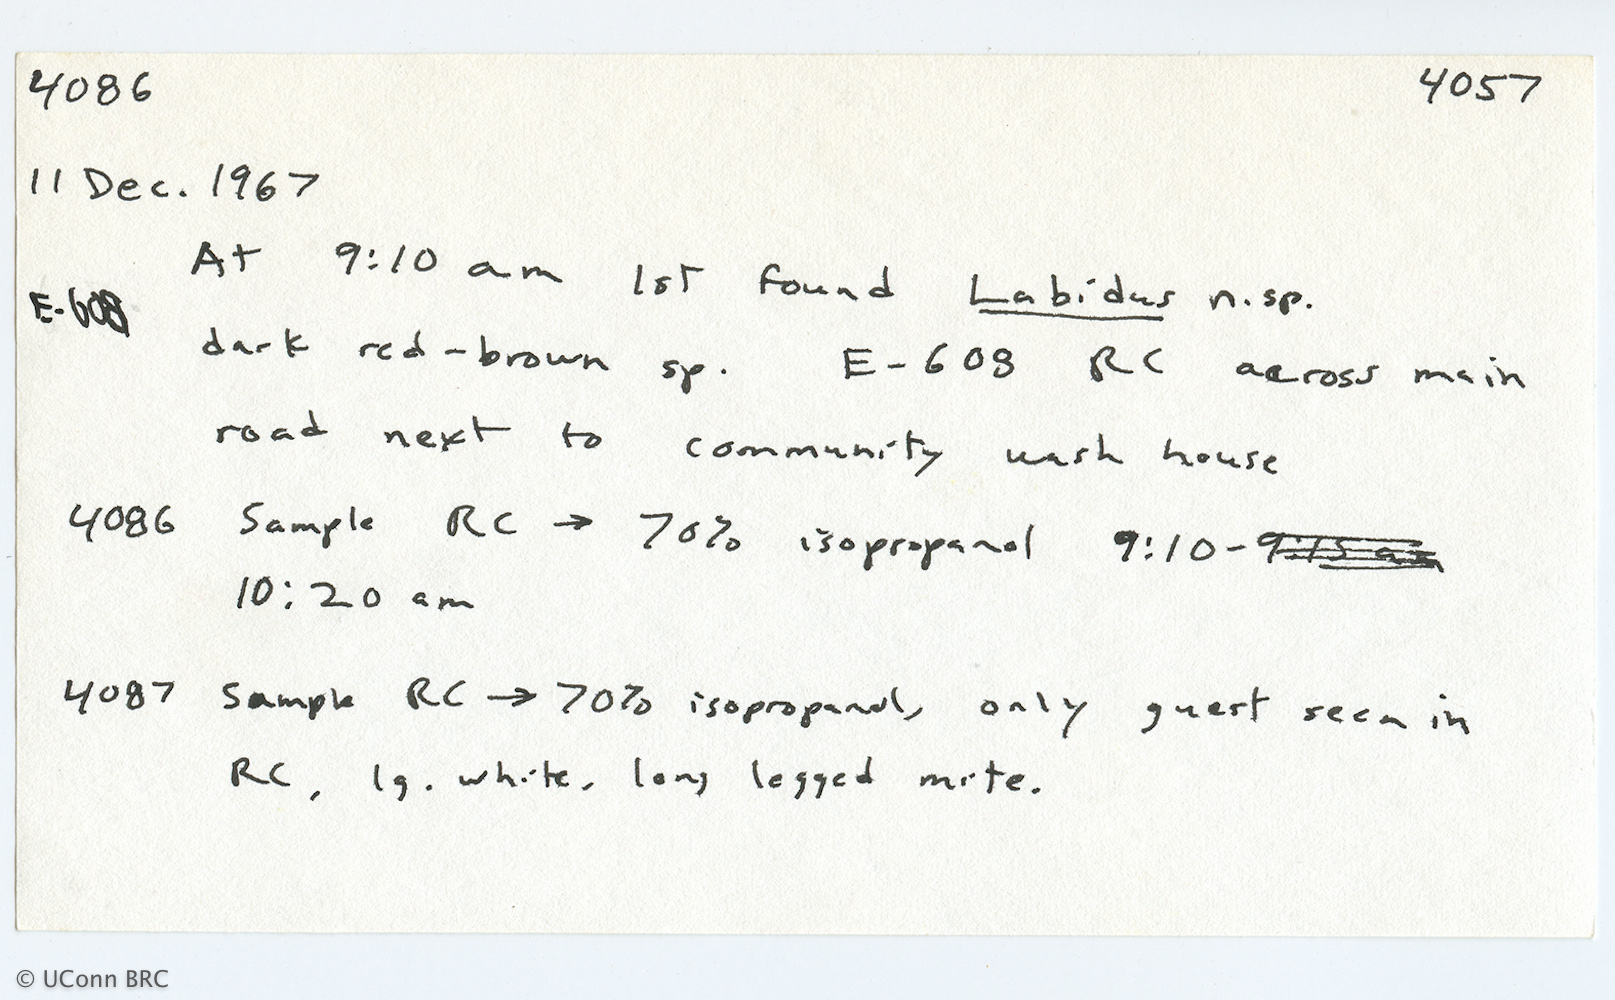 4086 4057
11 Dec. 1967
At 9:10 am 1st found Labidus n.sp.
E-608
dark red-brown sp. E-608 RC across main
road next to community wash house
4086 Sample RC → 70% isopropanol 9:10-9:15 am
10:20 am
4087 Sample RC → 70% isopropanol, only guest seen in
RC, lg. white, long legged mite.
© UConn BRC